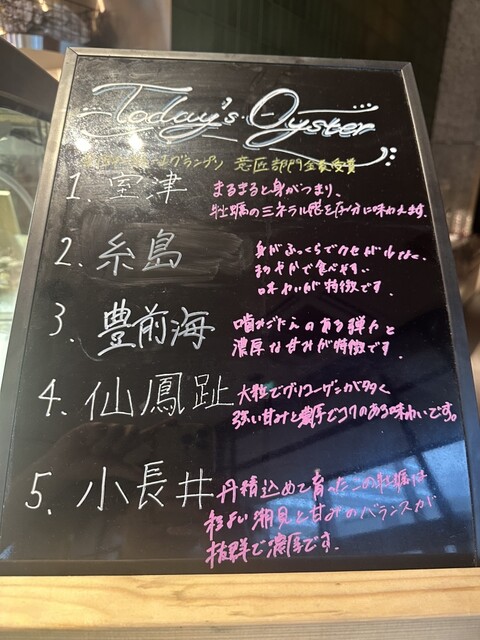 Today's Oyster
グランプリ 意匠部門金賞受賞
1. 室津
まるまると身がつまり、
牡蠣のミネラル感を存分に味わえます。
2. 糸島
身がふっくらでクセが少なく、
まろやかで食べやすい
味わいが特徴です。
3. 豊前海
噛みごたえのある弾力と
濃厚な甘みが特徴です。
4. 仙鳳趾
大粒でグリコーゲンが多く
強い甘みと濃厚でコクのある味わいです。
5. 小長井
丹精込めて育ったこの牡蠣は
程よい潮見と甘みのバランスが
抜群で濃厚です。